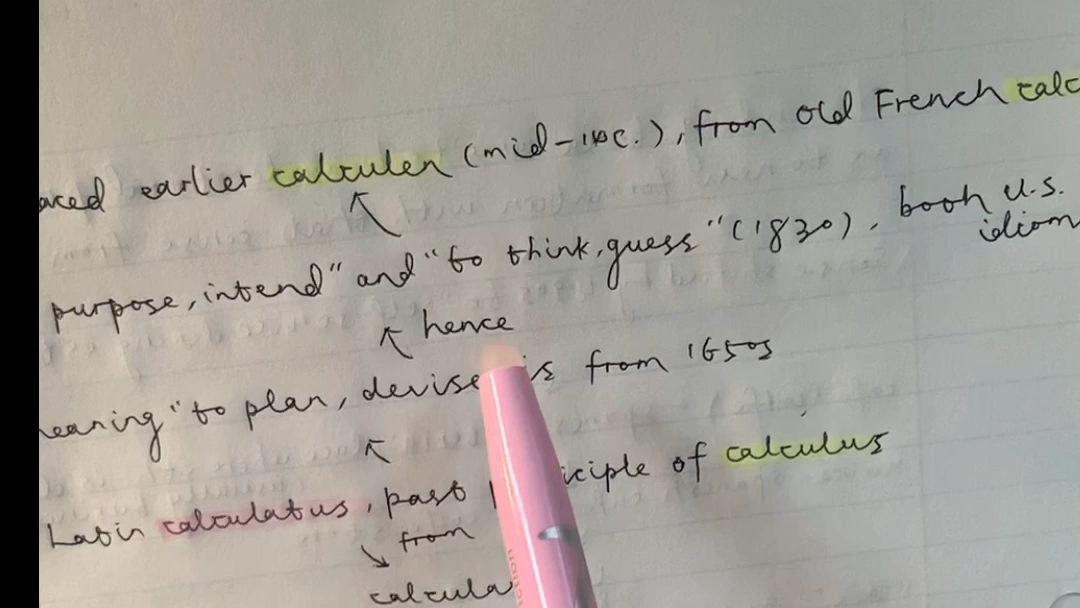 aced earlier calculen (mid-14c.), from old French calc
purpose, intend" and "to think, guess" (1830), both U.S.
idiom
hence
meaning "to plan, devise is from 1650s
Latin calculatus, past of calculus
from
calcula